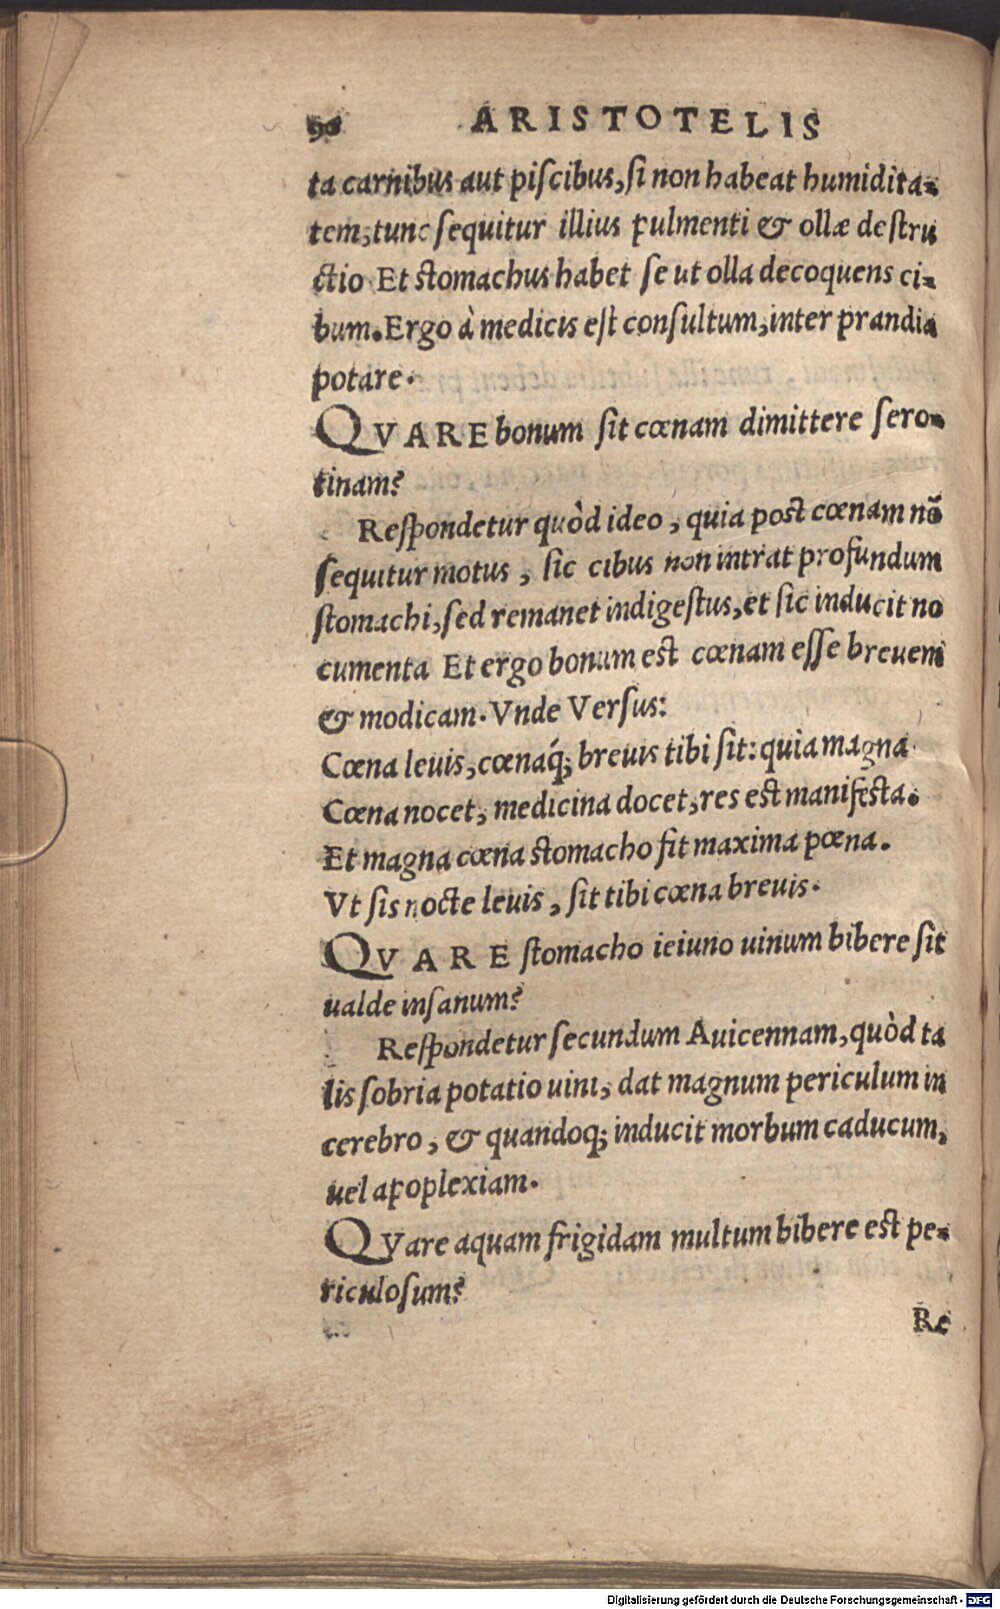 90 ARISTOTELIS
ta carnibus aut piſcibus, ſi non habeat humidita-
tem, tunc ſequitur illius pulmenti & ollæ deſtru
ctio Et ſtomachus habet ſe ut olla decoquens ci-
bum. Ergo à medicis eſt conſultum, inter prandia
potare.
QVARE bonum ſit cœnam dimittere ſero-
tinam?
Reſpondetur quòd ideo, quia poſt cœnam nō
ſequitur motus, ſic cibus non intrat profundum
ſtomachi, ſed remanet indigeſtus, et ſic inducit no
cumenta Et ergo bonum eſt cœnam eſſe breuem
& modicam. Vnde Verſus:
Cœna leuis, cœnaq́; breuis tibi ſit: quia magna
Cœna nocet, medicina docet, res eſt manifeſta.
Et magna cœna ſtomacho fit maxima pœna.
Vt ſis nocte leuis, ſit tibi cœna breuis.
QVARE ſtomacho ieiuno uinum bibere ſit
ualde inſanum?
Reſpondetur ſecundum Auicennam, quòd ta
lis ſobria potatio uini, dat magnum periculum in
cerebro, & quandoq; inducit morbum caducum,
uel apoplexiam.
QVare aquam frigidam multum bibere eſt pe-
riculoſum?
Re
Digitalisierung gefördert durch die Deutsche Forschungsgemeinschaft - DFG